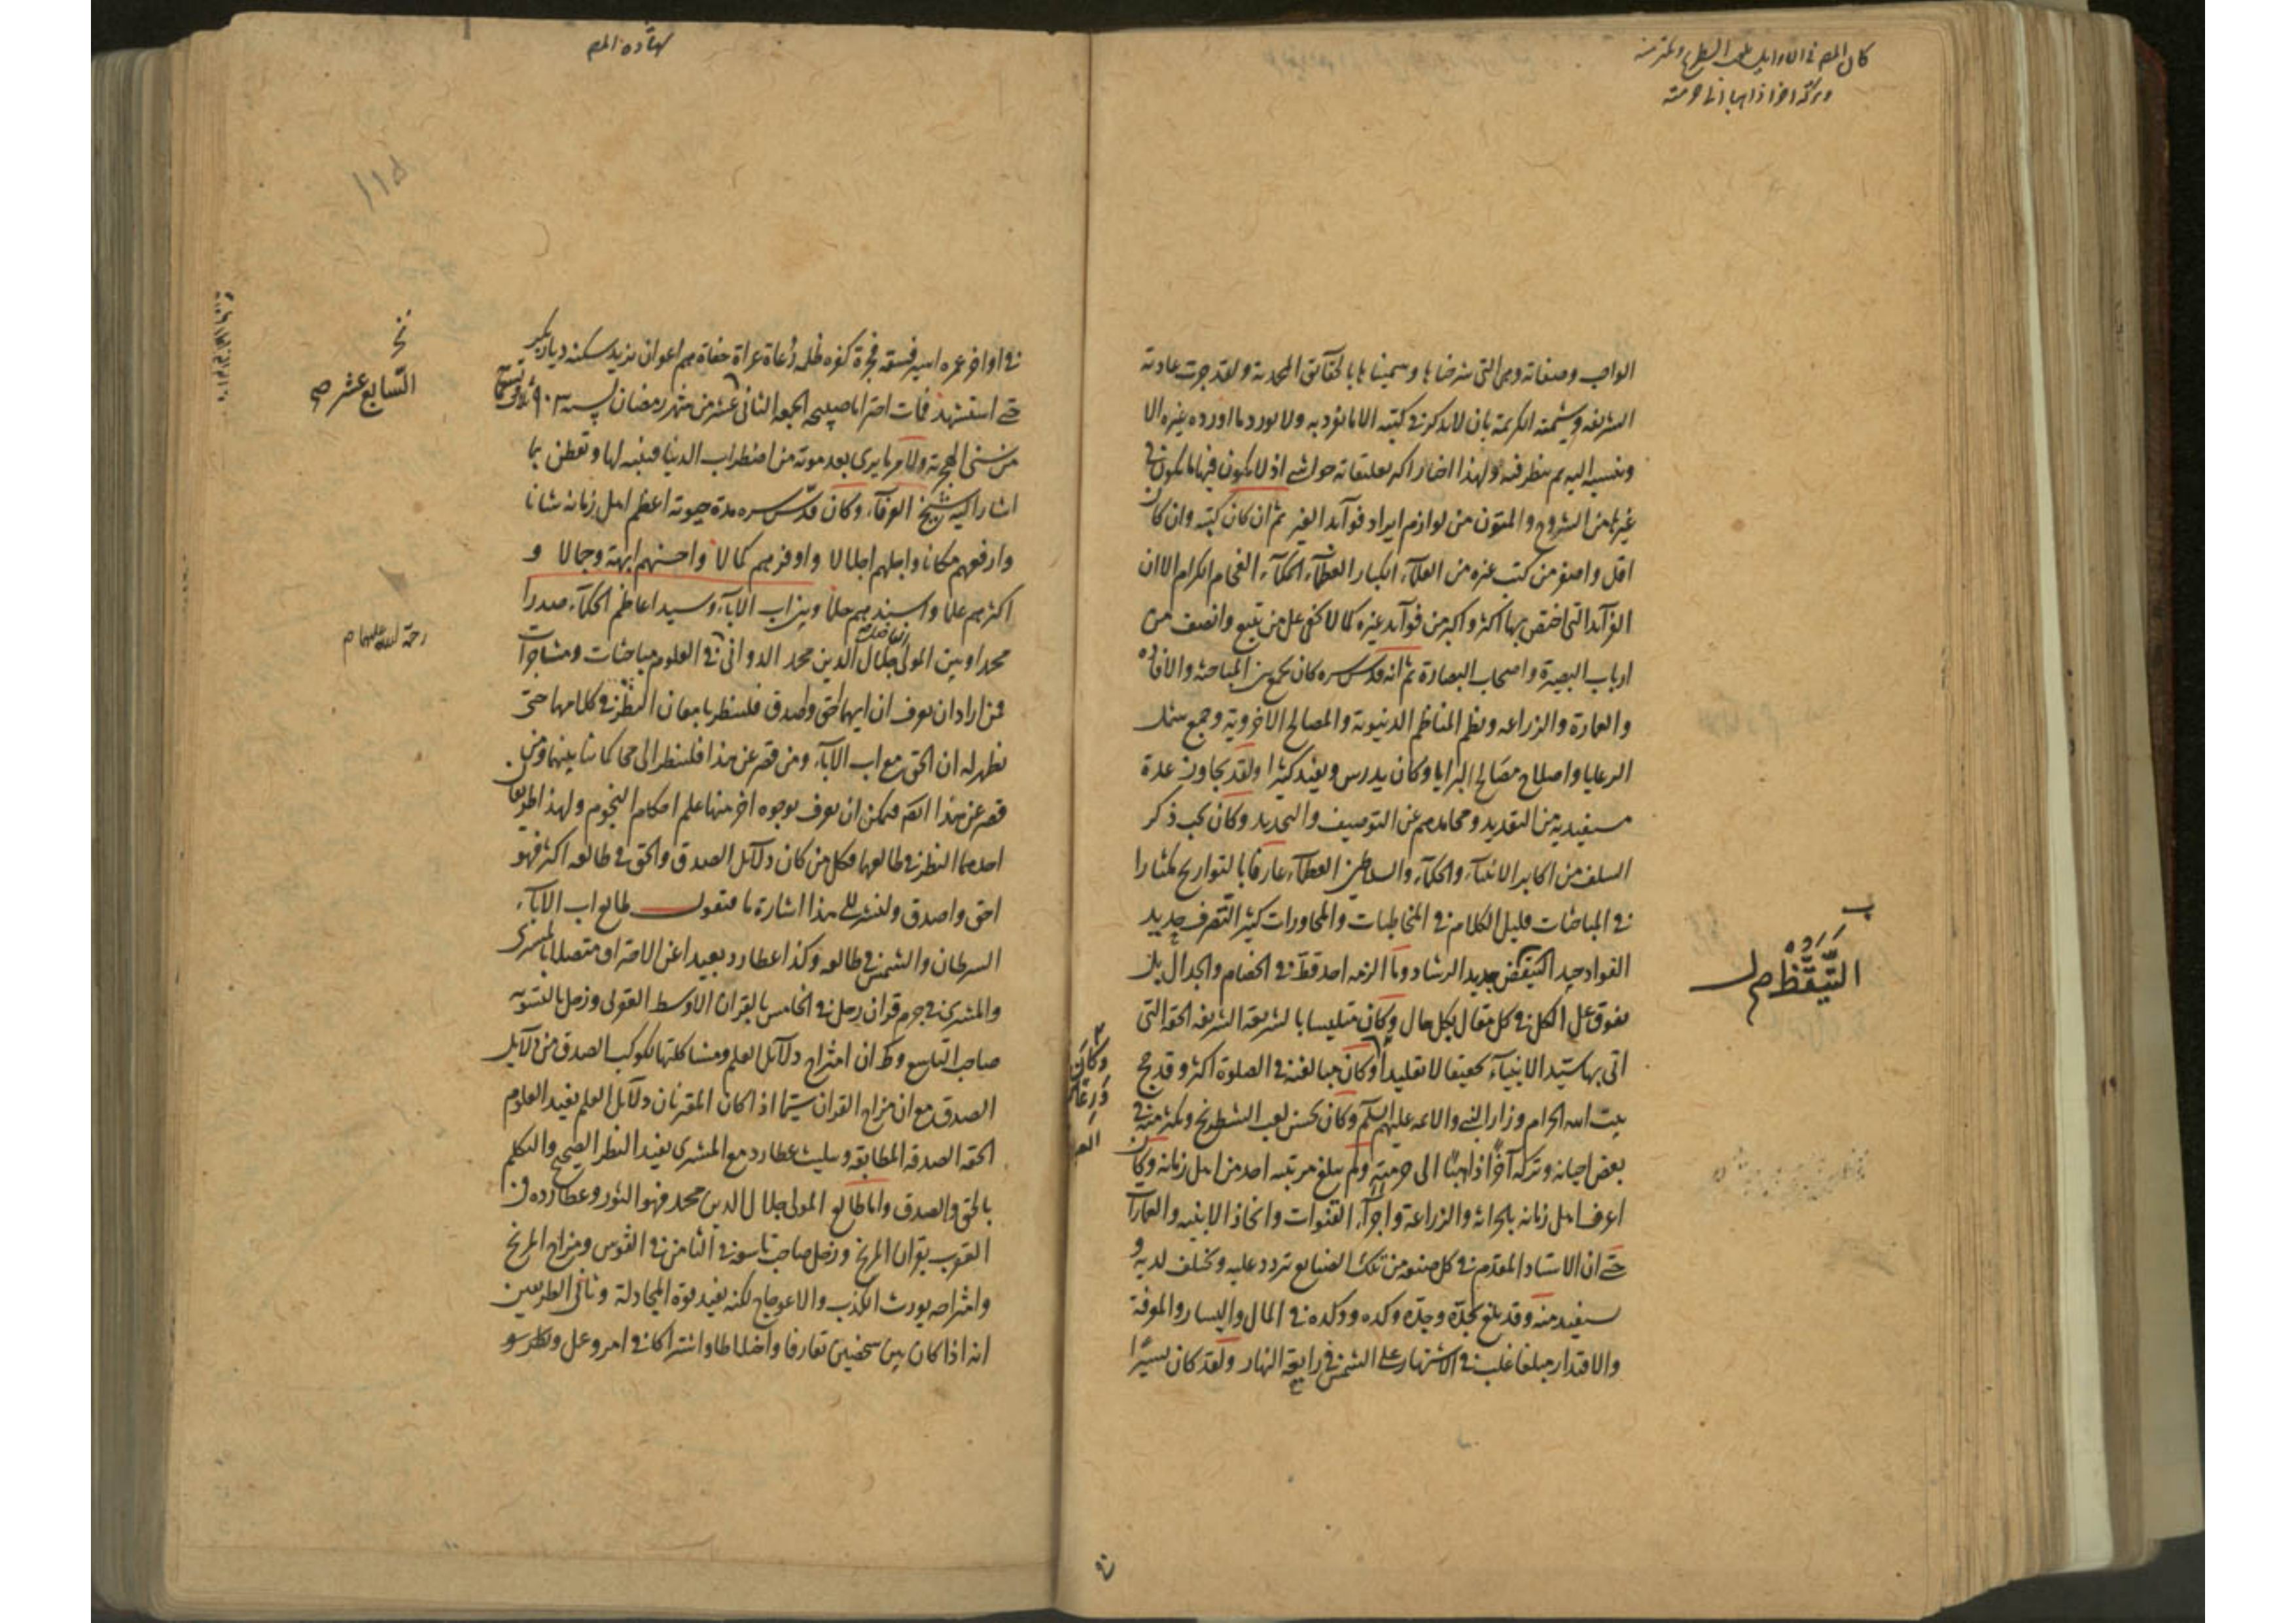 كان المص في الاوايل يلعب الشطرنج ويكثر منه
وتركه اخرا ذاهبا الى حرمته
الواجب وصفاته وهي التي شرحناها وسميناها بالحقايق المحمدية ولقد جرت عادته
الشريفة وشيمته الكريمة بان لا يذكر في كتبه الا ما تفرد به ولا يورد ما اورده غيره الا
وينسبه اليه ثم ينظر فيه ولهذا اختار اكثر تعليقاته حواشي اذ لا يكون فيها ما يكون في
غيرها من الشروح والمتون من لوازم ايراد فوآيد الغير ثم ان كان كتبه وان كان
اقل واصغر من كتب غيره من العلمآء الكبار العظمآء الحكمآء الفخام الكرام الا ان
الفوآيد التي اختص بها اكثر واكبر من فوآيد غيره كما لا يخفى على من تتبع وانصف من
ارباب البصيرة واصحاب البصارة ثم انه قدس سره كان يجمع بين المباحثة والافاده
والعمارة والزراعه ونظم المناظم الدنيوية والمصالح الاخروية وجمع شمل
الرعايا واصلاح مصالح البرايا وكان يدرس ويفيد كثيرا ولقد يجاوز عدة
مستفيديه من التقديد ومحامدهم عن التوصيف والتحديد وكان يحب ذكر
السلف من اكابر الانبيآء والحكمآء والسلاطين العظمآء عارفا بالتواريخ مكثارا
في المباحثات قليل الكلام في المخاطبات والمحاورات كثير التصرف حديد
الفواد جيد التيقظ جديد الرشاد وما الزمه احد قط في الخصام والجدال بل
يفوق على الكل في كل مقال بكل حال وكان متلبسا بالشريعة الشريفه الحقه التي
اتى بها سيد الانبيآء تحقيقا لا تقليدا وكان مبالغته في الصلوة اكثر وقد حج
بيت الله الحرام وزار النبي والائمه عليهم السلم وكان يحسن لعب الشطرنج ويكثر منه في
بعض احيانه وتركه آخرًا ذاهبًا الى حرمته ولم يبلغ مرتبته احد من اهل زمانه وكان
اعرف اهل زمانه بالحراثه والزراعة واجرآء القنوات واتخاذ الابنيه والعمارآت
حتى ان الاستاد المقدم في كل صنعه من تلك الصنايع تردد عليه ويختلف لديه و
يستفيد منه وقد بلغ بجدّه وجدّه وكده ووكده في المال واليسار والموفة
والاقتدار مبلغا غلب في الاشتهار على الشمس في رابعة النهار ولقد كان يسيرًا
التَّيَقُّظ ص
وكان
شهادة المص
١١٥
في اواخر عمره اسير فسقه فجرة كفره ظلمه رُعاة عراة حفاة هم اعوان يزيد سكنه ديار بكر
حتى استشهد فمات احتراما صبيحه الجمعه الثاني عشر من شهر رمضان لسنة ٩٠٣
من سني الهجرية ولامر ما يرى بعد موته من اضطراب الدنيا فتنبه لها وتفطن بما
اشار اليه شيخ العرفآء وكان قدس سره مدة حيوته اعظم اهل زمانه شانا
وارفعهم مكانا واجلهم اجلالا واوفرهم كمالا واحسنهم ابهة وجمالا و
اكثرهم علما واسندهم حلما وبين اب الابآء وسيد اعاظم الحكمآء صدرا
محمد او بين المولى جلال الدين محمد الدواني في العلوم مباحثات ومشاجرات
فمن اراد ان يعرف ان ايهما احق واصدق فلينظر بامعان النظر في كلامهما حتى
يظهر له ان الحق مع اب الآبآء ومن قصر عن هذا فلينظر الى محاكماتنا بينهما ومن
قصر عن هذا ايضا فيمكن ان يعرف بوجوه اخر منها علم احكام النجوم ولهذا طريقان
احدهما النظر في طالعهما فكل من كان دلآئل الصدق والحق في طالعه اكثر فهو
احق واصدق ولنشر الى هذا اشارة ما فنقول طالع اب الآبآء
السرطان والشمس في طالعه وكذا عطارد بعيدا عن الاحتراق متصلا بالمشترى
والمشترى في جرم قران زحل في الخامس بالقران الاوسط القولى وزحل بالتسويه
صاحب التاسع وظ ان امتزاج دلآئل العلم ومشاكلتها لكوكب الصدق من دلآئل
الصدق مع ان مزاج القران سيما اذا كان المقترنان دلآئل العلم يفيد العلوم
الحقه الصدقه المطابقه وتثليث عطارد مع المشترى يفيد النظر الصحيح والتكلم
بالحق والصدق واما طالع المولى جلال الدين محمد فهو الثور وعطارده في
العقرب بقران المريخ وزحل صاحب تاسعه في الثامن في القوس ومزاج المريخ
وامتزاجه يورث الكذب والاعوجاج لكنه يفيد قوة المجادلة وثاني الطريقين
انه اذا كان بين شخصين تعارفا واختلاطا واشتراكا في امر وعمل ونظر سو
السّابع عشر صح
رحمة الله عليهما م